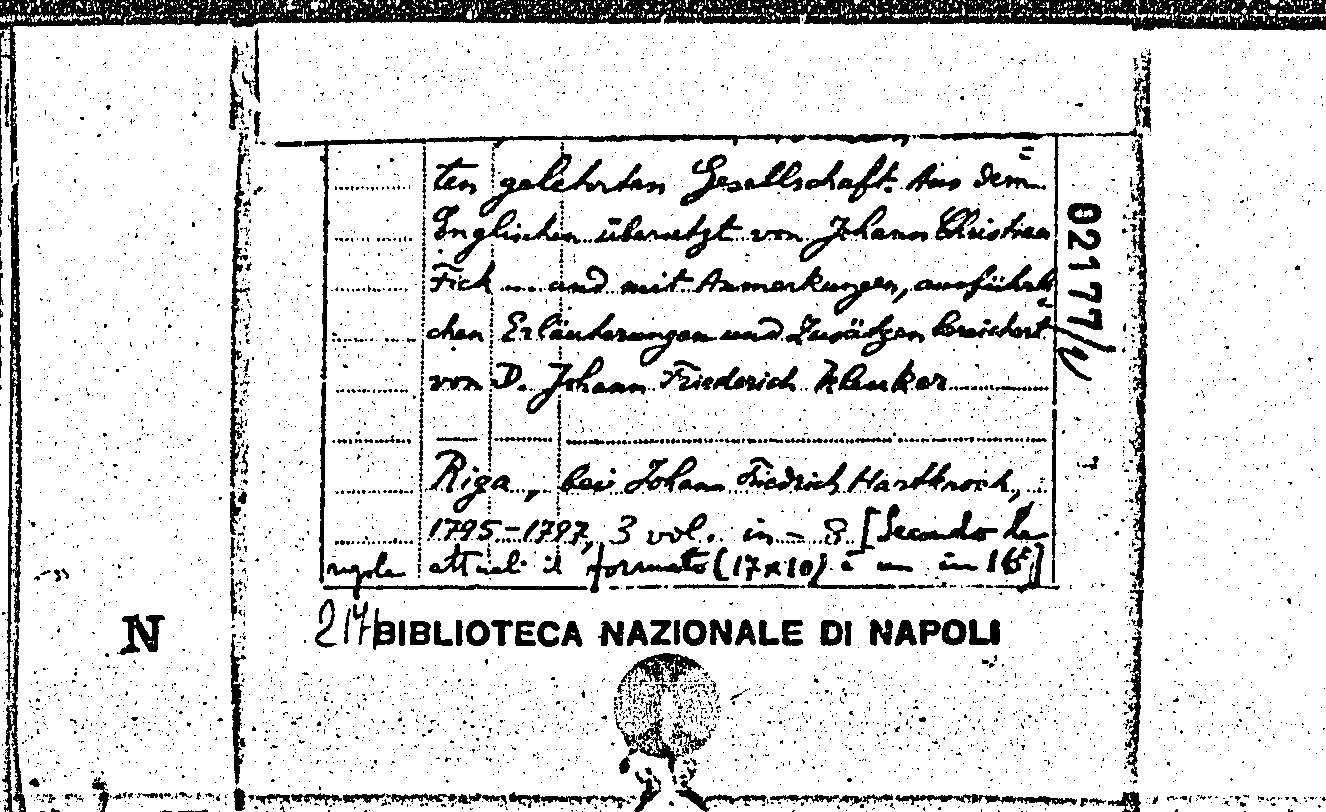 ten gelehrten Gesellschaft. Aus dem
Englischen übersetzt von Johann Christian
Fick ... und mit Anmerkungen, ausführli=
chen Erläuterungen und Zusätzen bereichert
von D. Johann Friederich Kleuker
Riga, bei Johann Friedrich Hartknoch,
1795-1797, 3 vol. in-8 [Secondo le
regole attuali il formato (17x10) è un in 16°]
02177/
217
BIBLIOTECA NAZIONALE DI NAPOLI
N